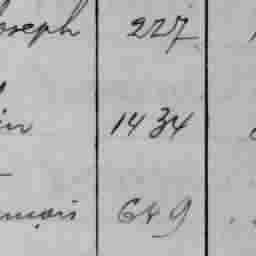 oseph 227
in 1434
nçois 649